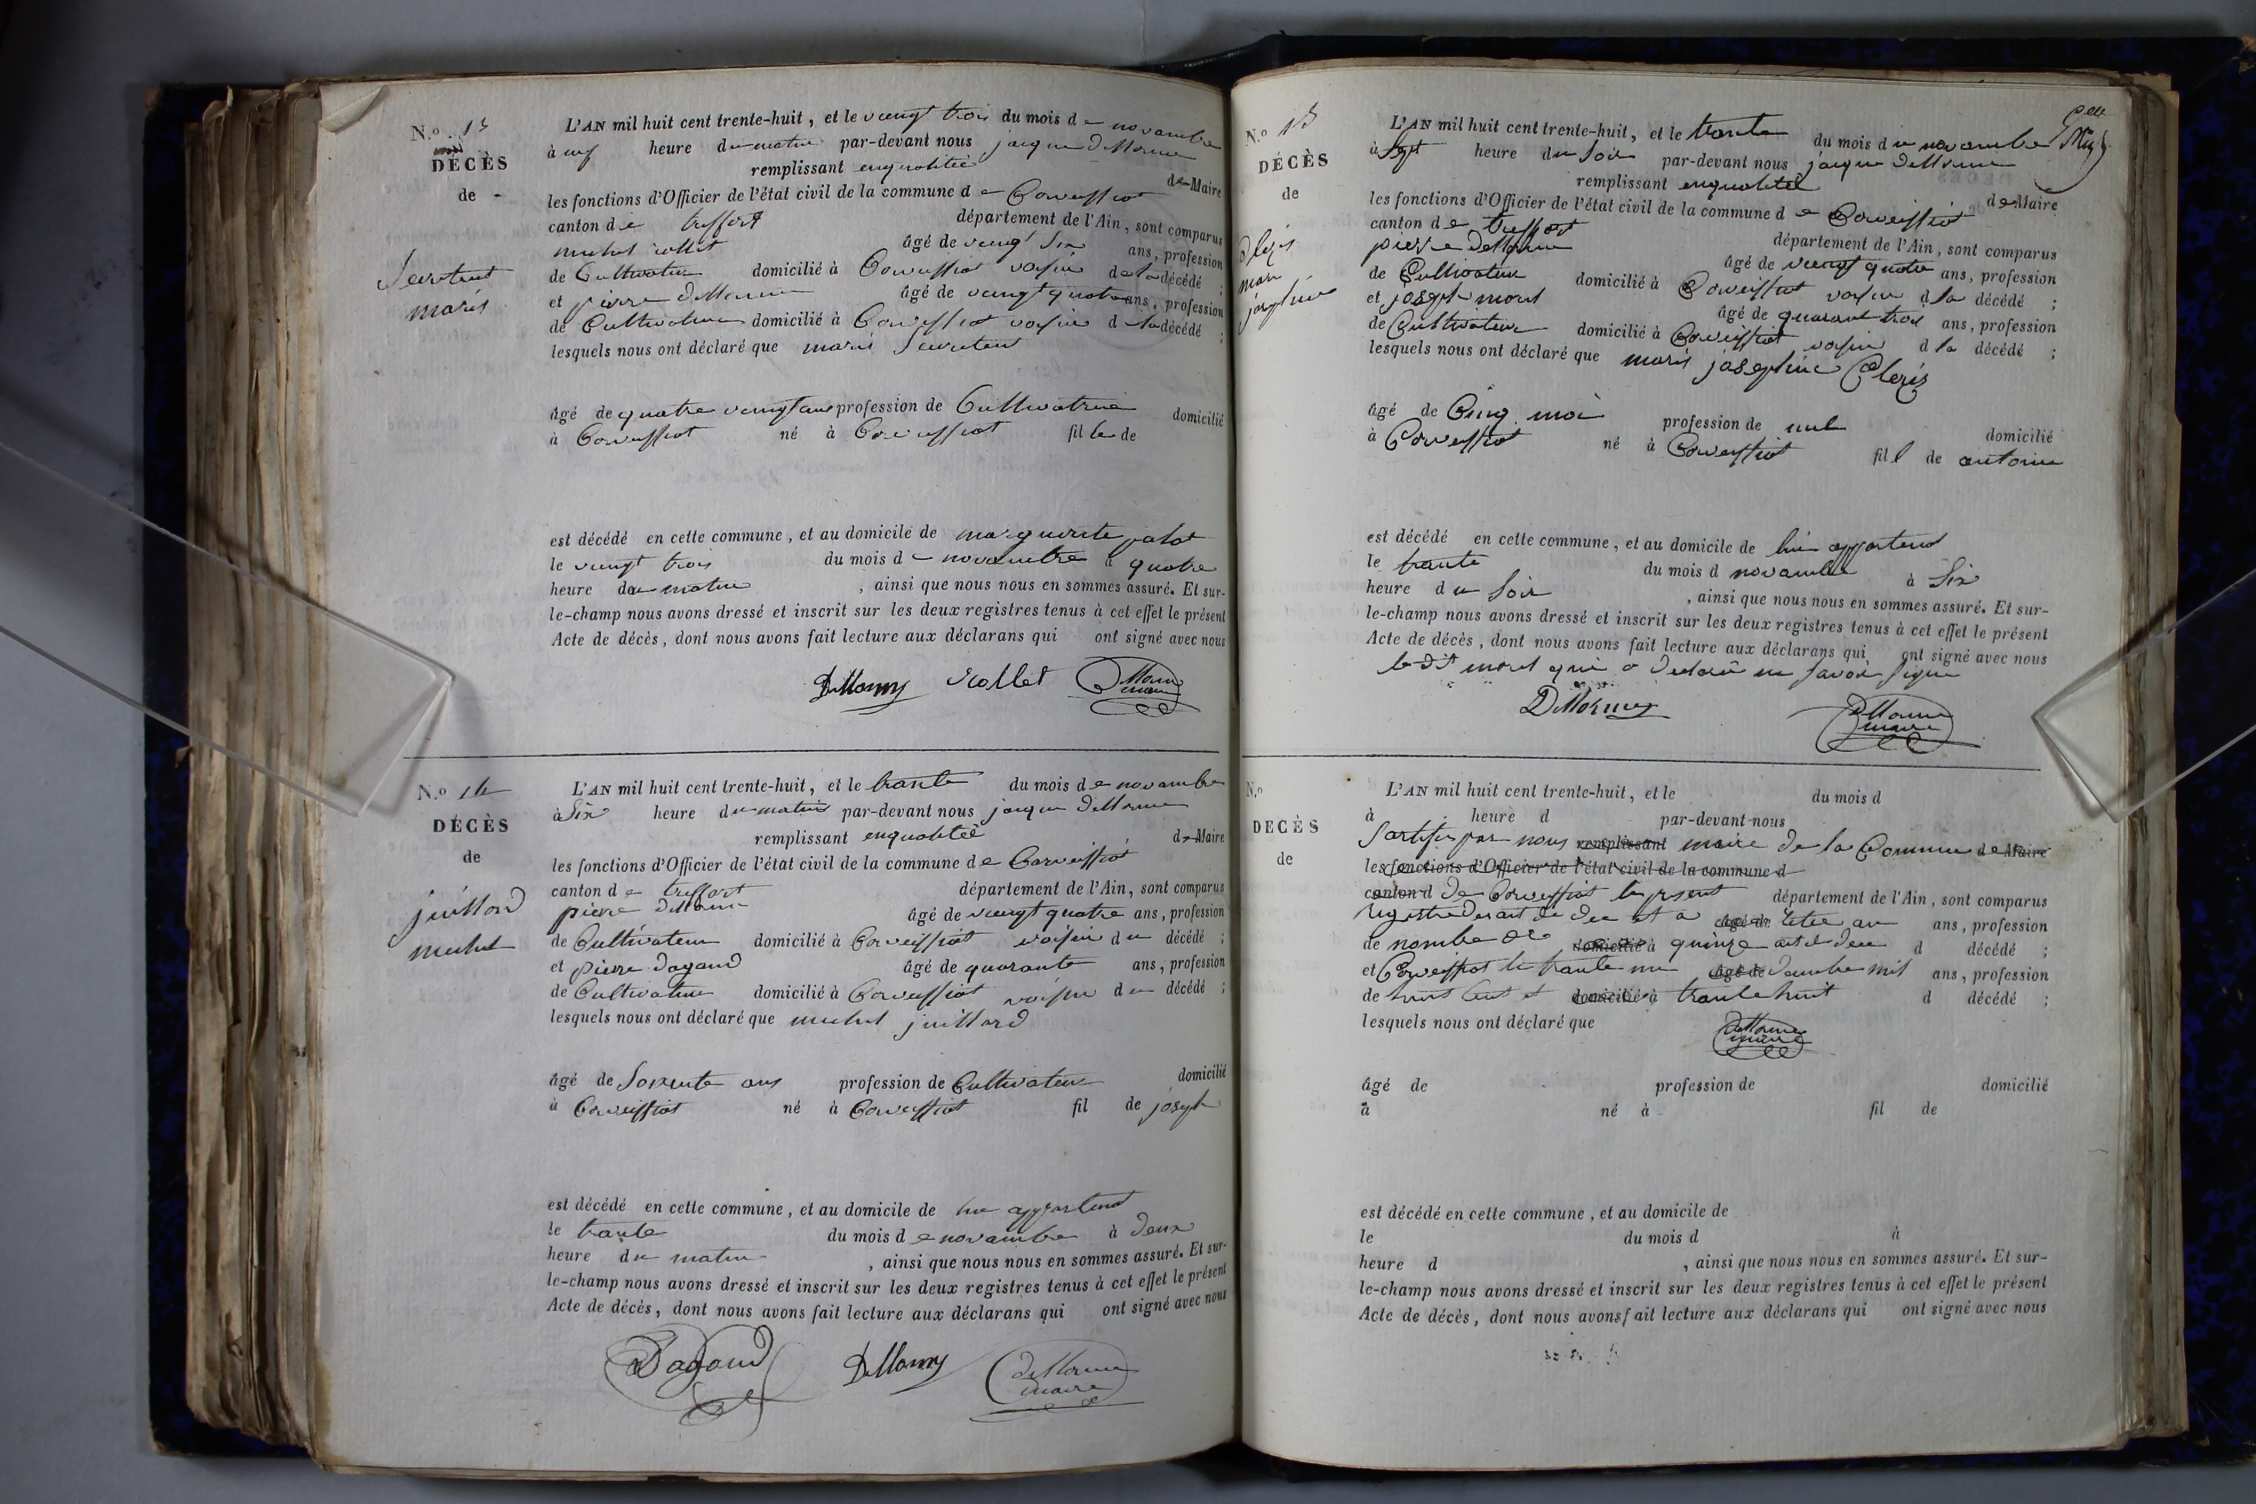 N.o 13
DÉCÈS
de
marie
L'AN mil huit cent trente-huit, et le vengt trois du mois de novambre
à neuf heure du matin par-devant nous jacque
remplissant enqualitée de Maire
les fonctions d'Officier de l'état civil de la commune de Corveissiat
canton de treffort département de l'Ain, sont comparus
michel rollet âgé de vengt Six ans, profession
de Cultivateur domicilié à Corveissiat voisin de la décédé ;
et pierre âgé de vengt quatre ans, profession
de Cultivateur domicilié à Corveissiat voisin de la décédé ;
lesquels nous ont déclaré que marie
âgé de quatre vengt ans profession de Cultivatrice domicilié
à Corveissiat né à Corveissiat fille de
est décédé en cette commune, et au domicile de marguerite
le vengt trois du mois de novambre à quatre
heure du matin, ainsi que nous nous en sommes assuré. Et sur-
le-champ nous avons dressé et inscrit sur les deux registres tenus à cet effet le présent
Acte de décès, dont nous avons fait lecture aux déclarans qui ont signé avec nous
rollet
maire
N.o 14
DÉCÈS
de
juillard
michel
L'AN mil huit cent trente-huit, et le trante du mois de novambre
à Six heure du matin par-devant nous jacque
remplissant enqualitée de Maire
les fonctions d'Officier de l'état civil de la commune de Corveissiat
canton de treffort département de l'Ain, sont comparus
pierre âgé de vengt quatre ans, profession
de Cultivateur domicilié à Corveissiat voisin du décédé ;
et pierre dagand âgé de quarante ans, profession
de Cultivateur domicilié à Corveissiat voisin du décédé ;
lesquels nous ont déclaré que michel juillard
âgé de Soixente ans profession de Cultivateur domicilié
à Corveissiat né à Corveissiat fil de joseph
est décédé en cette commune, et au domicile de lui appartena
le trante du mois de novambre à deux
heure du matin, ainsi que nous nous en sommes assuré. Et sur-
le-champ nous avons dressé et inscrit sur les deux registres tenus à cet effet le présent
Acte de décès, dont nous avons fait lecture aux déclarans qui ont signé avec nous
Dagand
maire
N.o 15
DÉCÈS
de
josephine
L'AN mil huit cent trente-huit, et le trante du mois de novambre
à Sept heure du Soir par-devant nous jacque
remplissant enqualitée de Maire
les fonctions d'Officier de l'état civil de la commune de Corveissiat
canton de treffort département de l'Ain, sont comparus
pierre âgé de vengt quatre ans, profession
de Cultivateur domicilié à Corveissiat voisin d la décédé ;
et joseph morel âgé de quarant trois ans, profession
de Cultivateur domicilié à Corveissiat voisin d la décédé ;
lesquels nous ont déclaré que marie josephine Cleris
âgé de Cinq moi profession de nul domicilié
à Corveissiat né à Corveissiat fill de antoine
est décédé en cette commune, et au domicile de lui appartena
le trante du mois d novambre à Six
heure du Soir, ainsi que nous nous en sommes assuré. Et sur-
le-champ nous avons dressé et inscrit sur les deux registres tenus à cet effet le présent
Acte de décès, dont nous avons fait lecture aux déclarans qui ont signé avec nous
le dit morel qui a declaré ne Savoir Signe
maire
N.o
DÉCÈS
de
L'AN mil huit cent trente-huit, et le du mois d
à heure d par-devant nous
par nous remplissant maire de la Commune de Maire
les fonctions d'Officier de l'état civil de la commune d
canton d de Corveissiat le département de l'Ain, sont comparus
âgé de ans, profession
de nombre de domicilié à quinze d décédé ;
et Corveissiat le trante âgé de mil ans, profession
de huit Cent et domicilié à trante huit d décédé ;
lesquels nous ont déclaré que
maire
âgé de profession de domicilié
à né à fil de
est décédé en cette commune, et au domicile de
le du mois d à
heure d, ainsi que nous nous en sommes assuré. Et sur-
le-champ nous avons dressé et inscrit sur les deux registres tenus à cet effet le présent
Acte de décès, dont nous avons fait lecture aux déclarans qui ont signé avec nous